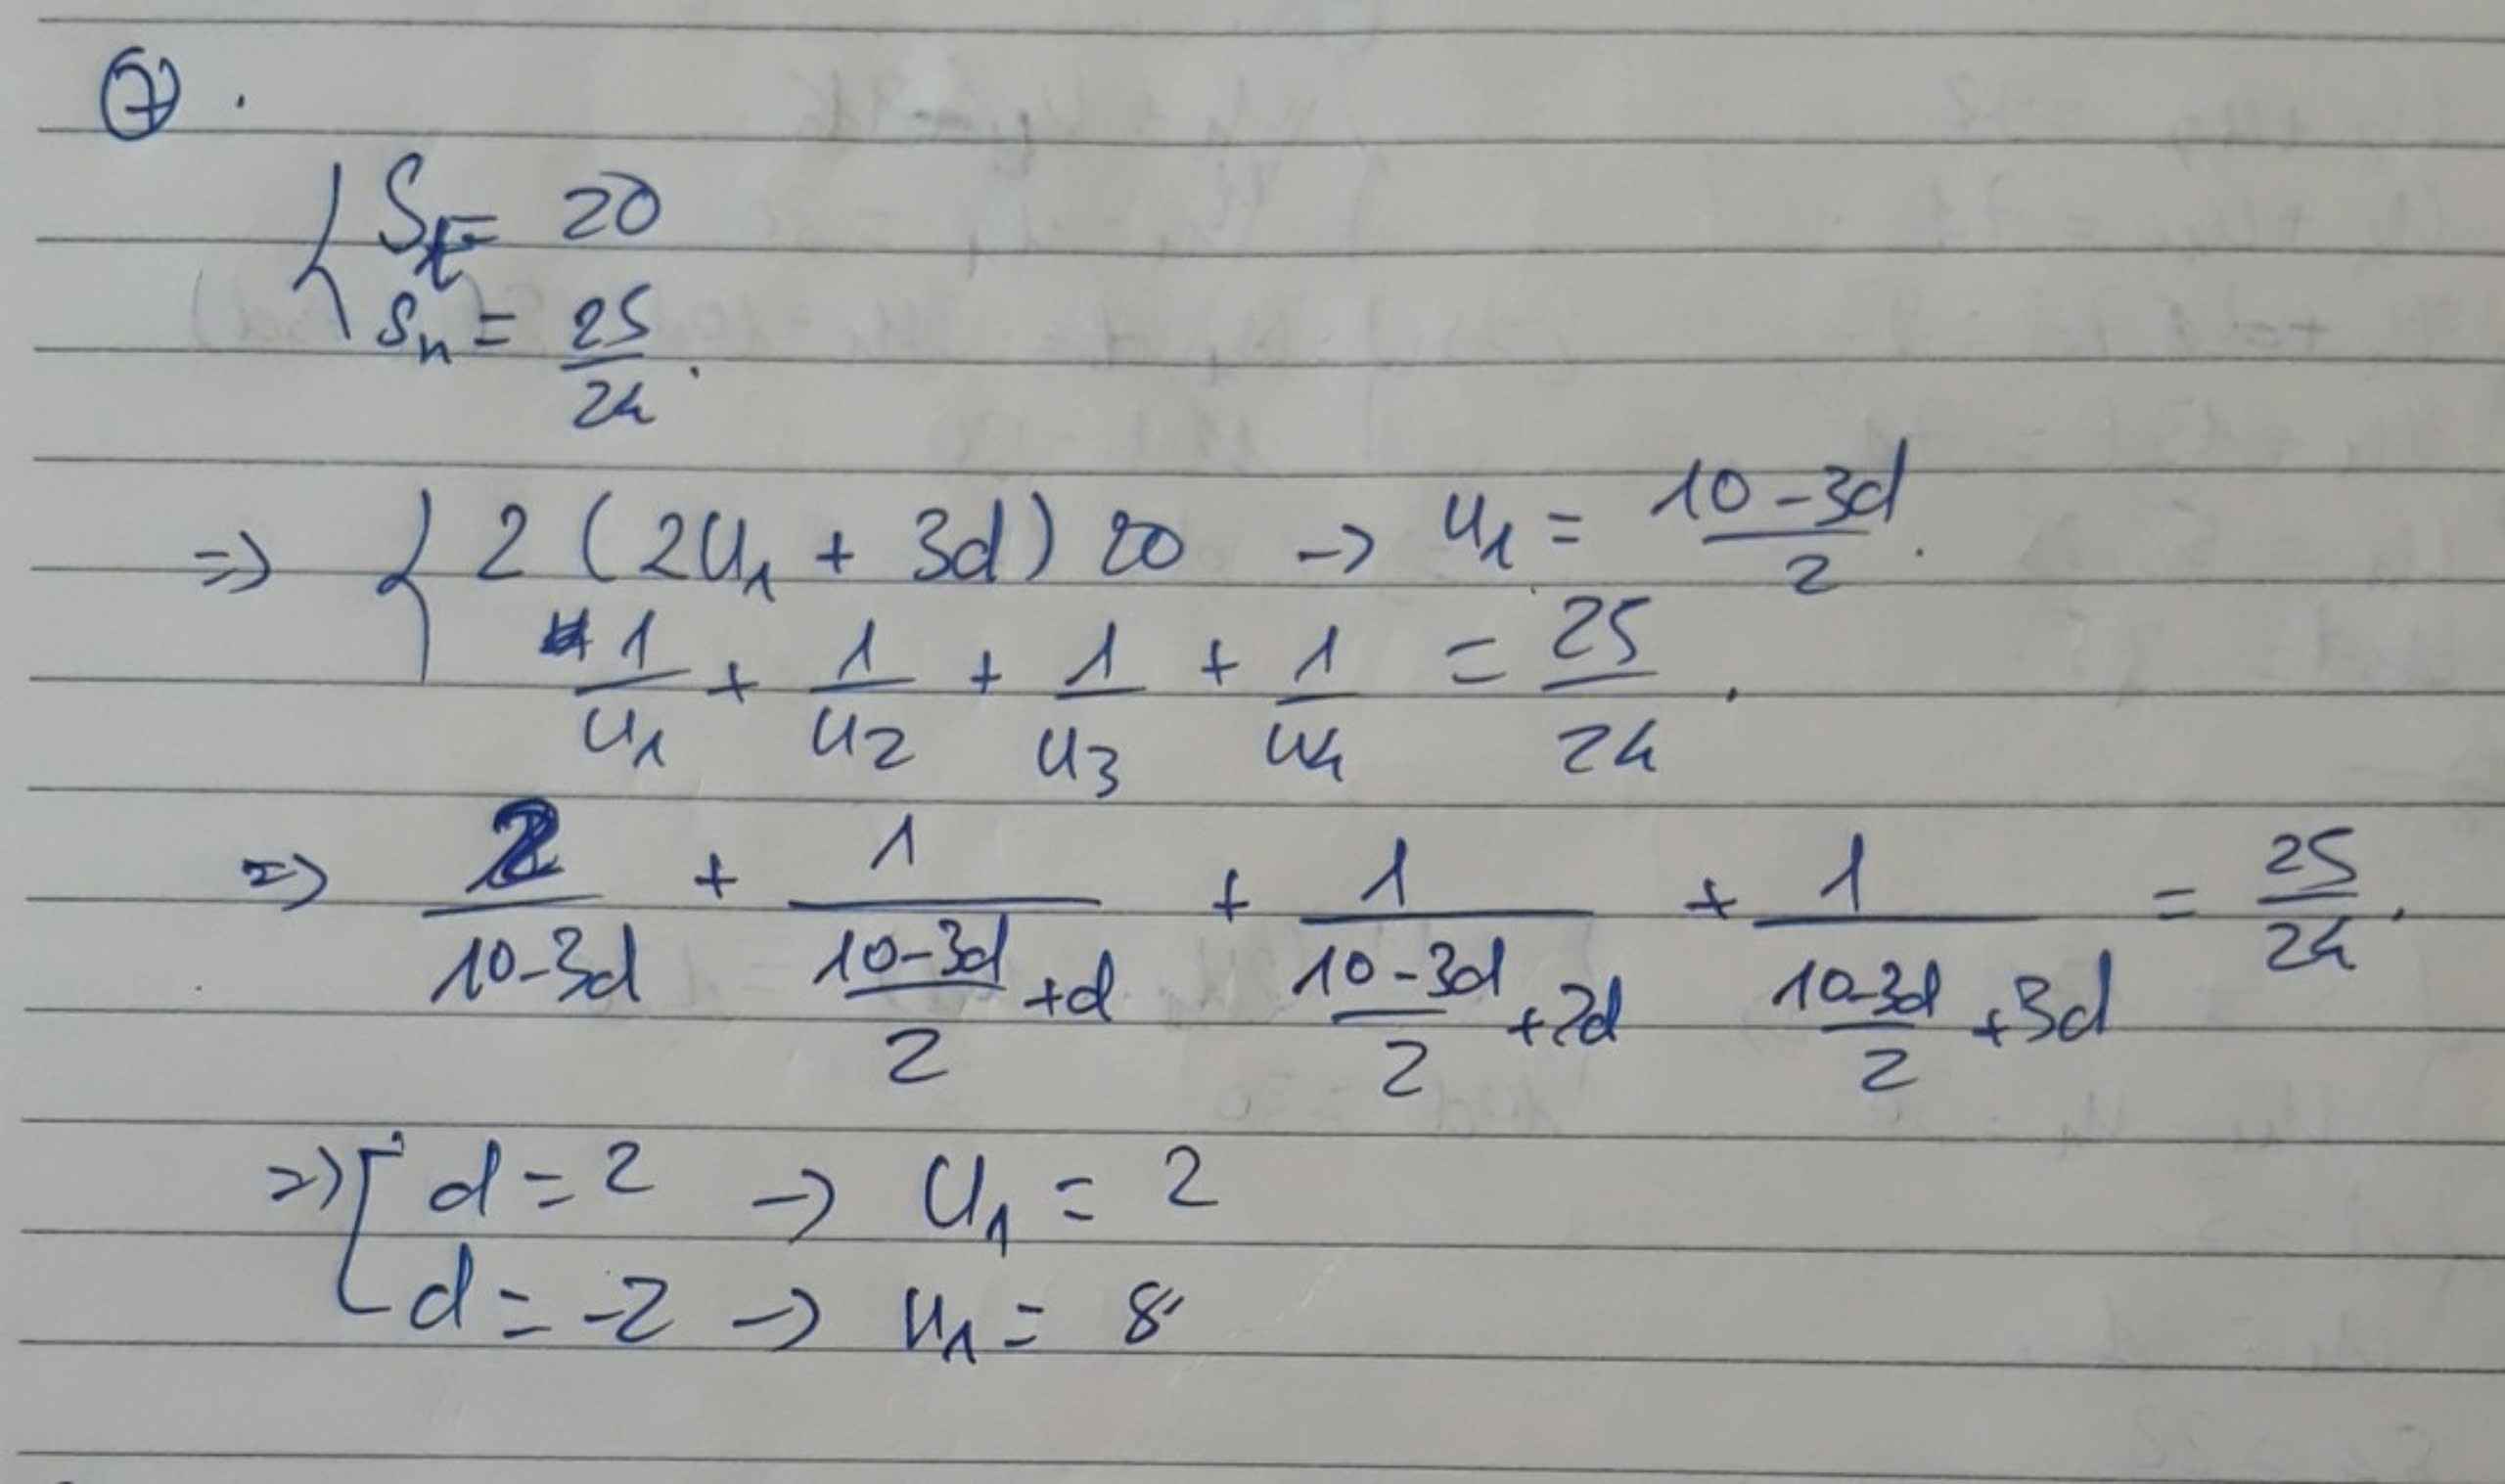 ⑦.
{ S₄ = 20
Sₙ = 25/24.
=> { 2 (2U₁ + 3d) 20 -> u₁ = (10-3d)/2.
1/u₁ + 1/u₂ + 1/u₃ + 1/u₄ = 25/24.
=> 2/(10-3d) + 1/((10-3d)/2 +d) + 1/((10-3d)/2 +2d) + 1/((10-3d)/2 +3d) = 25/24.
=> [ d = 2 -> U₁ = 2
d = -2 -> u₁ = 8